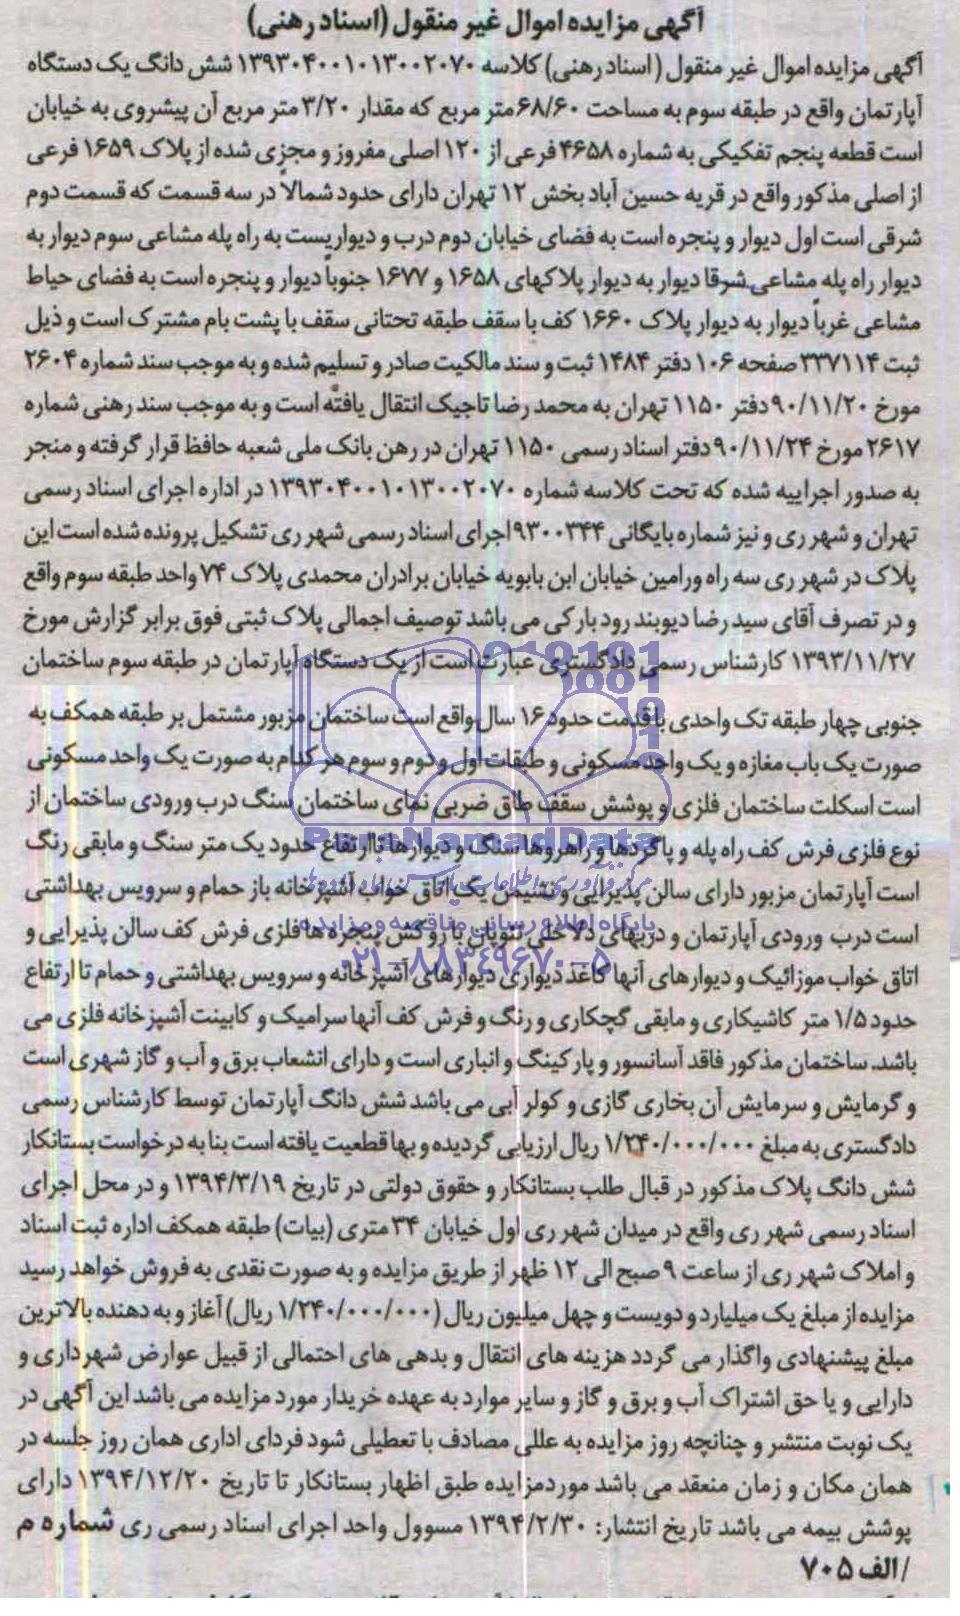 آگهی مزایده اموال غیر منقول (اسناد رهنی)
آگهی مزایده اموال غیر منقول (اسناد رهنی) کلاسه ۱۳۹۳۰۴۰۰۱۰۱۳۰۰۲۰۷۰ شش دانگ یک دستگاه
آپارتمان واقع در طبقه سوم به مساحت ۶۸/۶۰ متر مربع که مقدار ۳/۲۰ متر مربع آن پیشروی به خیابان
است قطعه پنجم تفکیکی به شماره ۴۶۵۸ فرعی از ۱۲۰ اصلی مفروز و مجزی شده از پلاک ۱۶۵۹ فرعی
از اصلی مذکور واقع در قریه حسین آباد بخش ۱۲ تهران دارای حدود شمالاً در سه قسمت که قسمت دوم
شرقی است اول دیوار و پنجره است به فضای خیابان دوم درب و دیواریست به راه پله مشاعی سوم دیوار به
دیوار راه پله مشاعی شرقا دیوار به دیوار پلاکهای ۱۶۵۸ و ۱۶۷۷ جنوباً دیوار و پنجره است به فضای حیاط
مشاعی غرباً دیوار به دیوار پلاک ۱۶۶۰ کف با سقف طبقه تحتانی سقف با پشت بام مشترک است و ذیل
ثبت ۳۳۷۱۱۴ صفحه ۱۰۶ دفتر ۱۴۸۴ ثبت و سند مالکیت صادر و تسلیم شده و به موجب سند شماره ۲۶۰۴
مورخ ۹۰/۱۱/۲۰ دفتر ۱۱۵۰ تهران به محمد رضا تاجیک انتقال یافته است و به موجب سند رهنی شماره
۲۶۱۷ مورخ ۹۰/۱۱/۲۴ دفتر اسناد رسمی ۱۱۵۰ تهران در رهن بانک ملی شعبه حافظ قرار گرفته و منجر
به صدور اجراییه شده که تحت کلاسه شماره ۱۳۹۳۰۴۰۰۱۰۱۳۰۰۲۰۷۰ در اداره اجرای اسناد رسمی
تهران و شهر ری و نیز شماره بایگانی ۹۳۰۰۳۴۴ اجرای اسناد رسمی شهر ری تشکیل پرونده شده است این
پلاک در شهر ری سه راه ورامین خیابان ابن بابویه خیابان برادران محمدی پلاک ۷۴ واحد طبقه سوم واقع
و در تصرف آقای سید رضا دیوبند رودبارکی می باشد توصیف اجمالی پلاک ثبتی فوق برابر گزارش مورخ
۱۳۹۳/۱۱/۲۷ کارشناس رسمی دادگستری عبارت است از یک دستگاه آپارتمان در طبقه سوم ساختمان
جنوبی چهار طبقه تک واحدی با قدمت حدود ۱۶ سال واقع است ساختمان مزبور مشتمل بر طبقه همکف به
صورت یک باب مغازه و یک واحد مسکونی و طبقات اول و دوم و سوم هر کدام به صورت یک واحد مسکونی
است اسکلت ساختمان فلزی و پوشش سقف طاق ضربی نمای ساختمان سنگ درب ورودی ساختمان از
نوع فلزی فرش کف راه پله و پاگردها و راهروها سنگ و دیوارها تا ارتفاع حدود یک متر سنگ و مابقی رنگ
است آپارتمان مزبور دارای سالن پذیرایی و نشیمن یک اتاق خواب آشپزخانه باز حمام و سرویس بهداشتی
است درب ورودی آپارتمان و دربهای داخلی نئوپان با روکش پنجره ها فلزی فرش کف سالن پذیرایی و
اتاق خواب موزائیک و دیوارهای آنها کاغذ دیواری دیوارهای آشپزخانه و سرویس بهداشتی و حمام تا ارتفاع
حدود ۱/۵ متر کاشیکاری و مابقی گچکاری و رنگ و فرش کف آنها سرامیک و کابینت آشپزخانه فلزی می
باشد. ساختمان مذکور فاقد آسانسور و پارکینگ و انباری است و دارای انشعاب برق و آب و گاز شهری است
و گرمایش و سرمایش آن بخاری گازی و کولر آبی می باشد شش دانگ آپارتمان توسط کارشناس رسمی
دادگستری به مبلغ ۱/۲۴۰/۰۰۰/۰۰۰ ریال ارزیابی گردیده و بها قطعیت یافته است بنا به درخواست بستانکار
شش دانگ پلاک مذکور در قبال طلب بستانکار و حقوق دولتی در تاریخ ۱۳۹۴/۳/۱۹ و در محل اجرای
اسناد رسمی شهر ری واقع در میدان شهر ری اول خیابان ۳۴ متری (بیات) طبقه همکف اداره ثبت اسناد
و املاک شهر ری از ساعت ۹ صبح الی ۱۲ ظهر از طریق مزایده و به صورت نقدی به فروش خواهد رسید
مزایده از مبلغ یک میلیارد و دویست و چهل میلیون ریال (۱/۲۴۰/۰۰۰/۰۰۰ ریال) آغاز و به دهنده بالاترین
مبلغ پیشنهادی واگذار می گردد هزینه های انتقال و بدهی های احتمالی از قبیل عوارض شهرداری و
دارایی و یا حق اشتراک آب و برق و گاز و سایر موارد به عهده خریدار مورد مزایده می باشد این آگهی در
یک نوبت منتشر و چنانچه روز مزایده به عللی مصادف با تعطیلی شود فردای اداری همان روز جلسه در
همان مکان و زمان منعقد می باشد موردمزایده طبق اظهار بستانکار تا تاریخ ۱۳۹۴/۱۲/۲۰ دارای
پوشش بیمه می باشد تاریخ انتشار: ۱۳۹۴/۲/۳۰ مسوول واحد اجرای اسناد رسمی ری شماره م
/ الف ۷۰۵
ParsNamadData
پایگاه اطلاع رسانی مناقصه و مزایده
۰۲۱-۸۸۳۴۹۶۷۰-۵